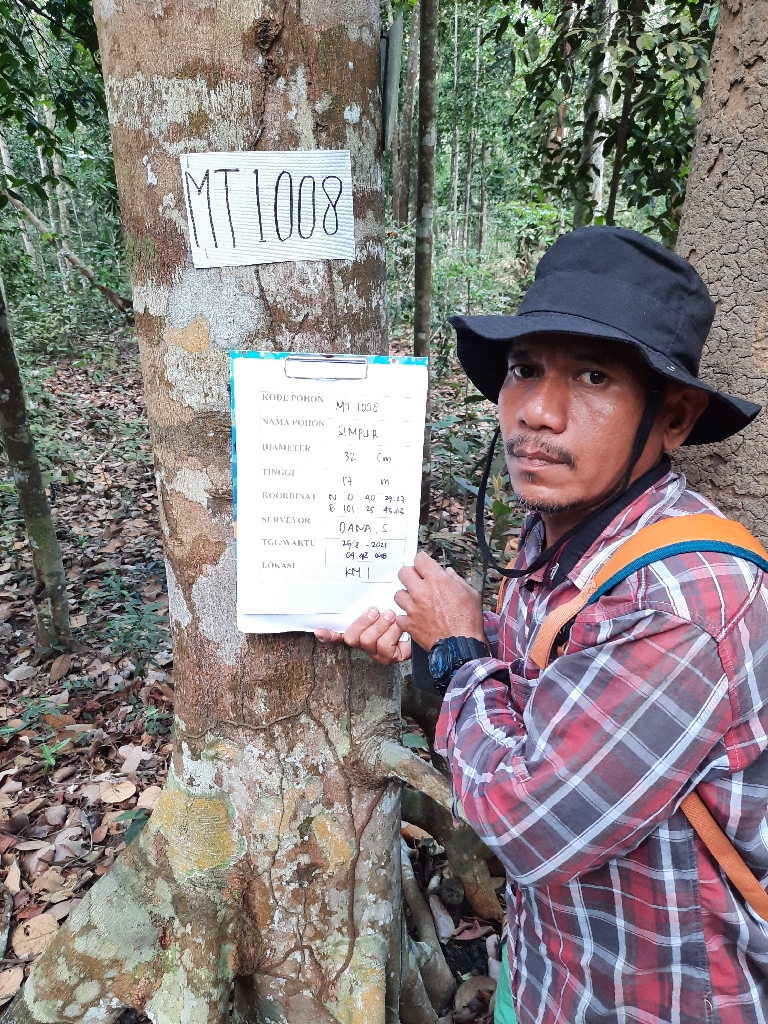 MT1008
KODE POHON MT 1008
NAMA POHON SIMPUR
DIAMETER 32 Cm
TINGGI 17 m
KOORDINAT N 0 40 29.27
E 101 25 43.62
SURVEYOR DANA. S
TGL/WAKTU 26/2 - 2021
09.42 WIB
LOKASI KM 1